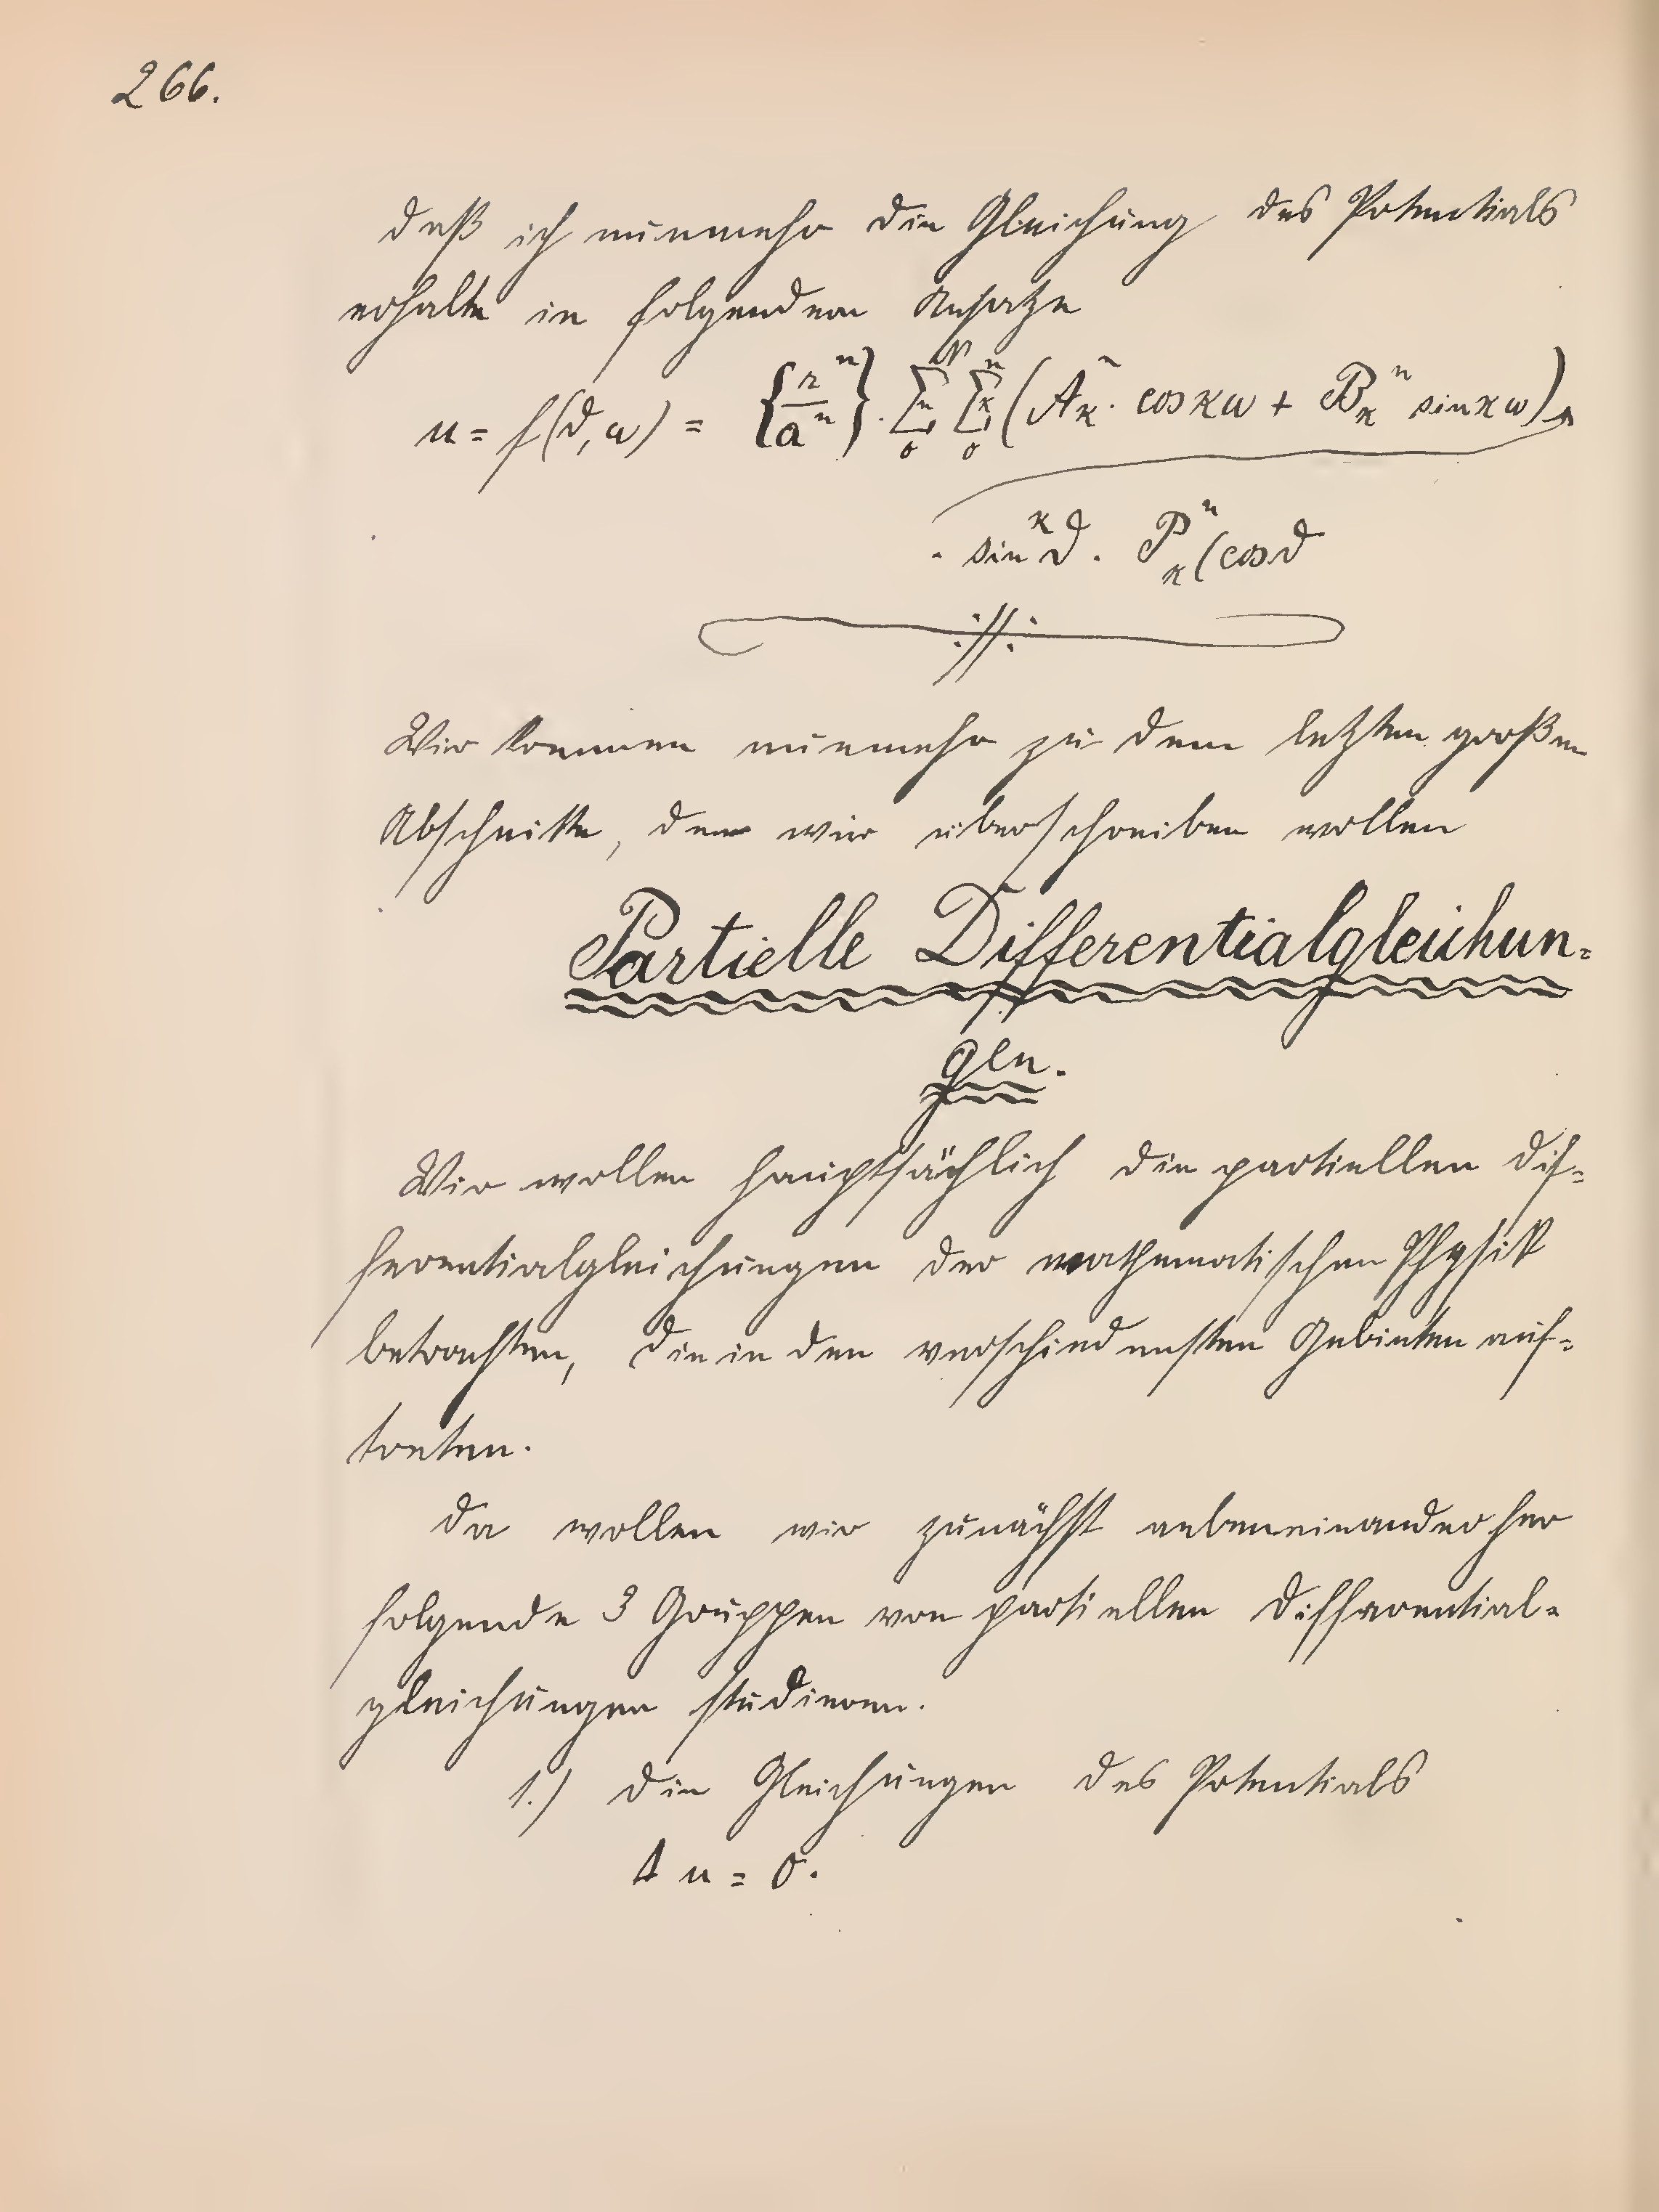 266.
daß ich nunmehr die Gleichung des Potentials
erhalte in folgendem Ansatze
u = f(ϑ, ω) = {r^n / a^n} · Σ_n^N_0 Σ_κ^n_0 (A_κ^n · cos κω + B_κ^n sin κω) ·
· sin^κ ϑ · P_κ^n (cos ϑ
Wir kommen nunmehr zu dem letzten großen
Abschnitte, den wir überschreiben wollen
Partielle Differentialgleichun-
gen.
Wir wollen hauptsächlich die partiellen Dif-
ferentialgleichungen der mathematischen Physik
betrachten, die in den verschiedensten Gebieten auf-
treten.
Da wollen wir zunächst nebeneinander her
folgende 3 Gruppen von partiellen Differential-
gleichungen studieren.
1.) Die Gleichungen des Potentials
Δ u = 0.